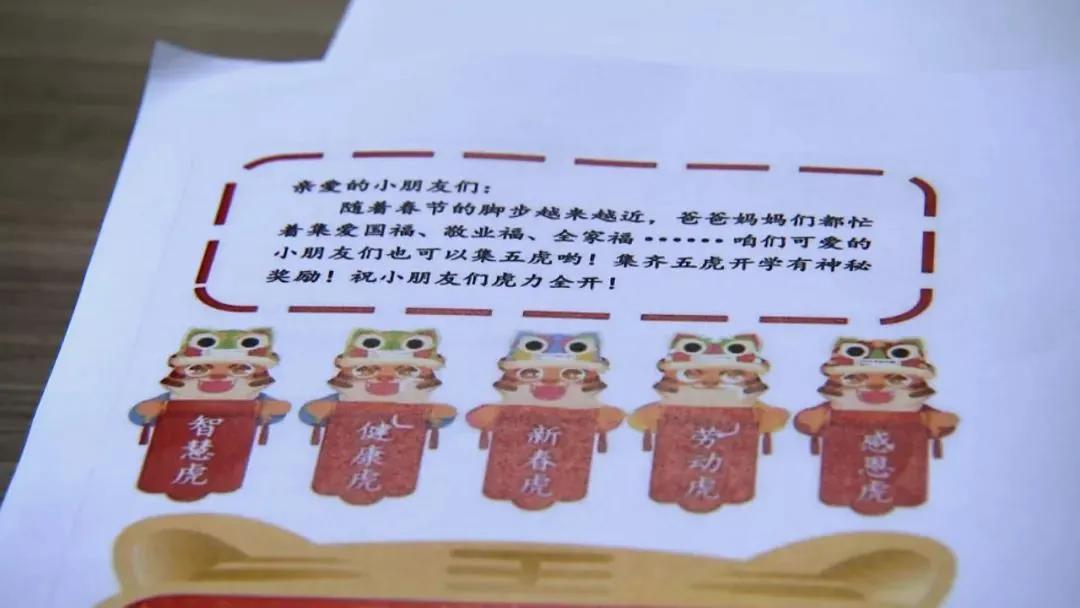 亲爱的小朋友们：
随着春节的脚步越来越近，爸爸妈妈们都忙
着集爱国福、敬业福、全家福……咱们可爱的
小朋友们也可以集五虎哟！集齐五虎开学有神秘
奖励！祝小朋友们虎力全开！
智慧虎
健康虎
新春虎
劳动虎
感恩虎